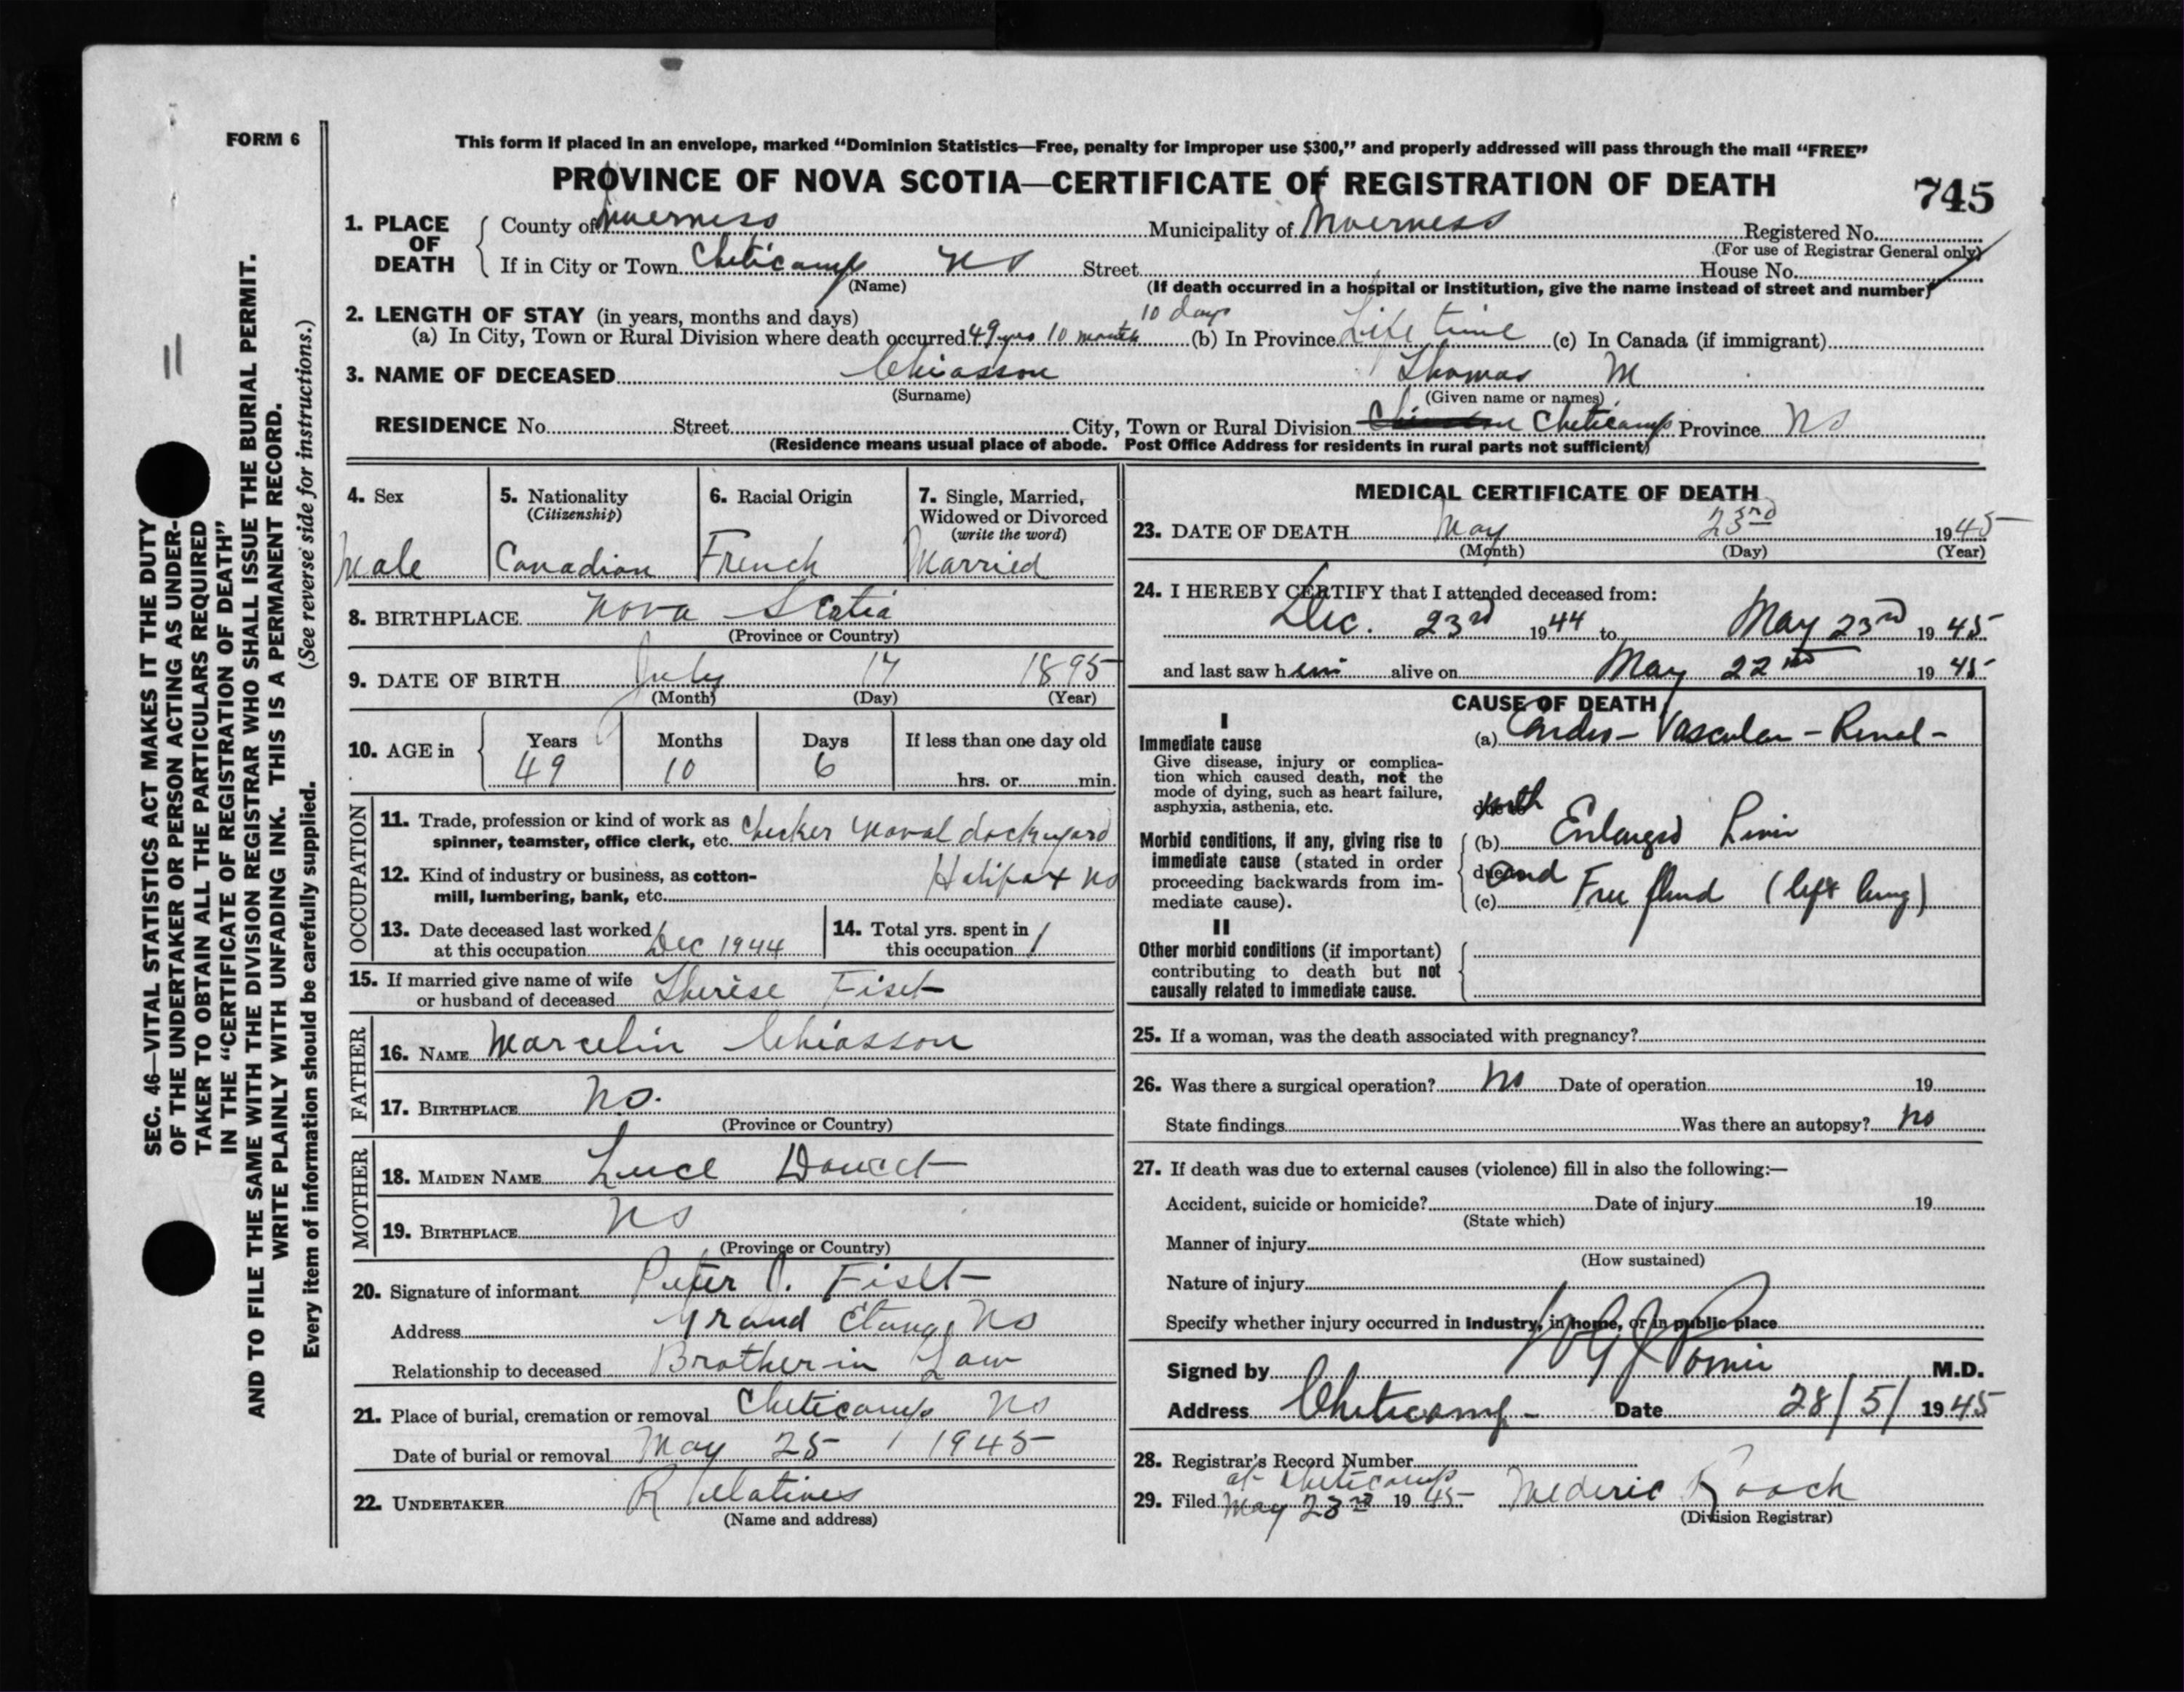 FORM 6
This form if placed in an envelope, marked “Dominion Statistics—Free, penalty for improper use $300,” and properly addressed will pass through the mail “FREE”
PROVINCE OF NOVA SCOTIA—CERTIFICATE OF REGISTRATION OF DEATH
745
1. PLACE OF DEATH
County of Inverness Municipality of Inverness Registered No.
(For use of Registrar General only)
If in City or Town Cheticamp NS Street House No.
(Name) (If death occurred in a hospital or institution, give the name instead of street and number)
2. LENGTH OF STAY (in years, months and days) 10 days
(a) In City, Town or Rural Division where death occurred 49 yrs 10 month (b) In Province Life time (c) In Canada (if immigrant)
3. NAME OF DECEASED Chiasson Thomas M
(Surname) (Given name or names)
RESIDENCE No. Street City, Town or Rural Division Cheticamp Province NS
(Residence means usual place of abode. Post Office Address for residents in rural parts not sufficient)
4. Sex
Male
5. Nationality
(Citizenship)
Canadian
6. Racial Origin
French
7. Single, Married,
Widowed or Divorced
(write the word)
Married
8. BIRTHPLACE Nova Scotia
(Province or Country)
9. DATE OF BIRTH July 17 1895
(Month) (Day) (Year)
10. AGE in Years Months Days If less than one day old
49 10 6 hrs. or min.
OCCUPATION
11. Trade, profession or kind of work as
spinner, teamster, office clerk, etc. Checker Naval dockyard
12. Kind of industry or business, as cotton-
mill, lumbering, bank, etc. Halifax NS
13. Date deceased last worked
at this occupation Dec 1944
14. Total yrs. spent in
this occupation 1
15. If married give name of wife
or husband of deceased Therèse Fiset
FATHER
16. NAME Marcelin Chiasson
17. BIRTHPLACE N.S.
(Province or Country)
MOTHER
18. MAIDEN NAME Luce Doucet
19. BIRTHPLACE NS
(Province or Country)
20. Signature of informant Peter J. Fiset
Address Grand Etang NS
Relationship to deceased Brother in Law
21. Place of burial, cremation or removal Cheticamp NS
Date of burial or removal May 25 1945
22. UNDERTAKER Relatives
(Name and address)
MEDICAL CERTIFICATE OF DEATH
23. DATE OF DEATH May 23rd 1945
(Month) (Day) (Year)
24. I HEREBY CERTIFY that I attended deceased from:
Dec. 23rd 1944 to May 23rd 1945
and last saw him alive on May 22nd 1945
CAUSE OF DEATH
I
Immediate cause
Give disease, injury or complica-
tion which caused death, not the
mode of dying, such as heart failure,
asphyxia, asthenia, etc.
(a) Cardio-Vascular-Renal-
with
Morbid conditions, if any, giving rise to
immediate cause (stated in order
proceeding backwards from im-
mediate cause).
(b) Enlarged Liver
and
(c) Free fluid (left lung)
II
Other morbid conditions (if important)
contributing to death but not
causally related to immediate cause.
25. If a woman, was the death associated with pregnancy?
26. Was there a surgical operation? No Date of operation 19
State findings Was there an autopsy? No
27. If death was due to external causes (violence) fill in also the following:—
Accident, suicide or homicide? Date of injury 19
(State which)
Manner of injury
(How sustained)
Nature of injury
Specify whether injury occurred in Industry, in home, or in public place
Signed by M.D.
Address Cheticamp- Date 28/5/ 1945
28. Registrar's Record Number
at Cheticamp
29. Filed May 23rd 1945 Mederic Roach
(Division Registrar)
SEC. 46—VITAL STATISTICS ACT MAKES IT THE DUTY
OF THE UNDERTAKER OR PERSON ACTING AS UNDER-
TAKER TO OBTAIN ALL THE PARTICULARS REQUIRED
IN THE “CERTIFICATE OF REGISTRATION OF DEATH”
AND TO FILE THE SAME WITH THE DIVISION REGISTRAR WHO SHALL ISSUE THE BURIAL PERMIT.
WRITE PLAINLY WITH UNFADING INK. THIS IS A PERMANENT RECORD.
Every item of information should be carefully supplied. (See reverse side for instructions.)